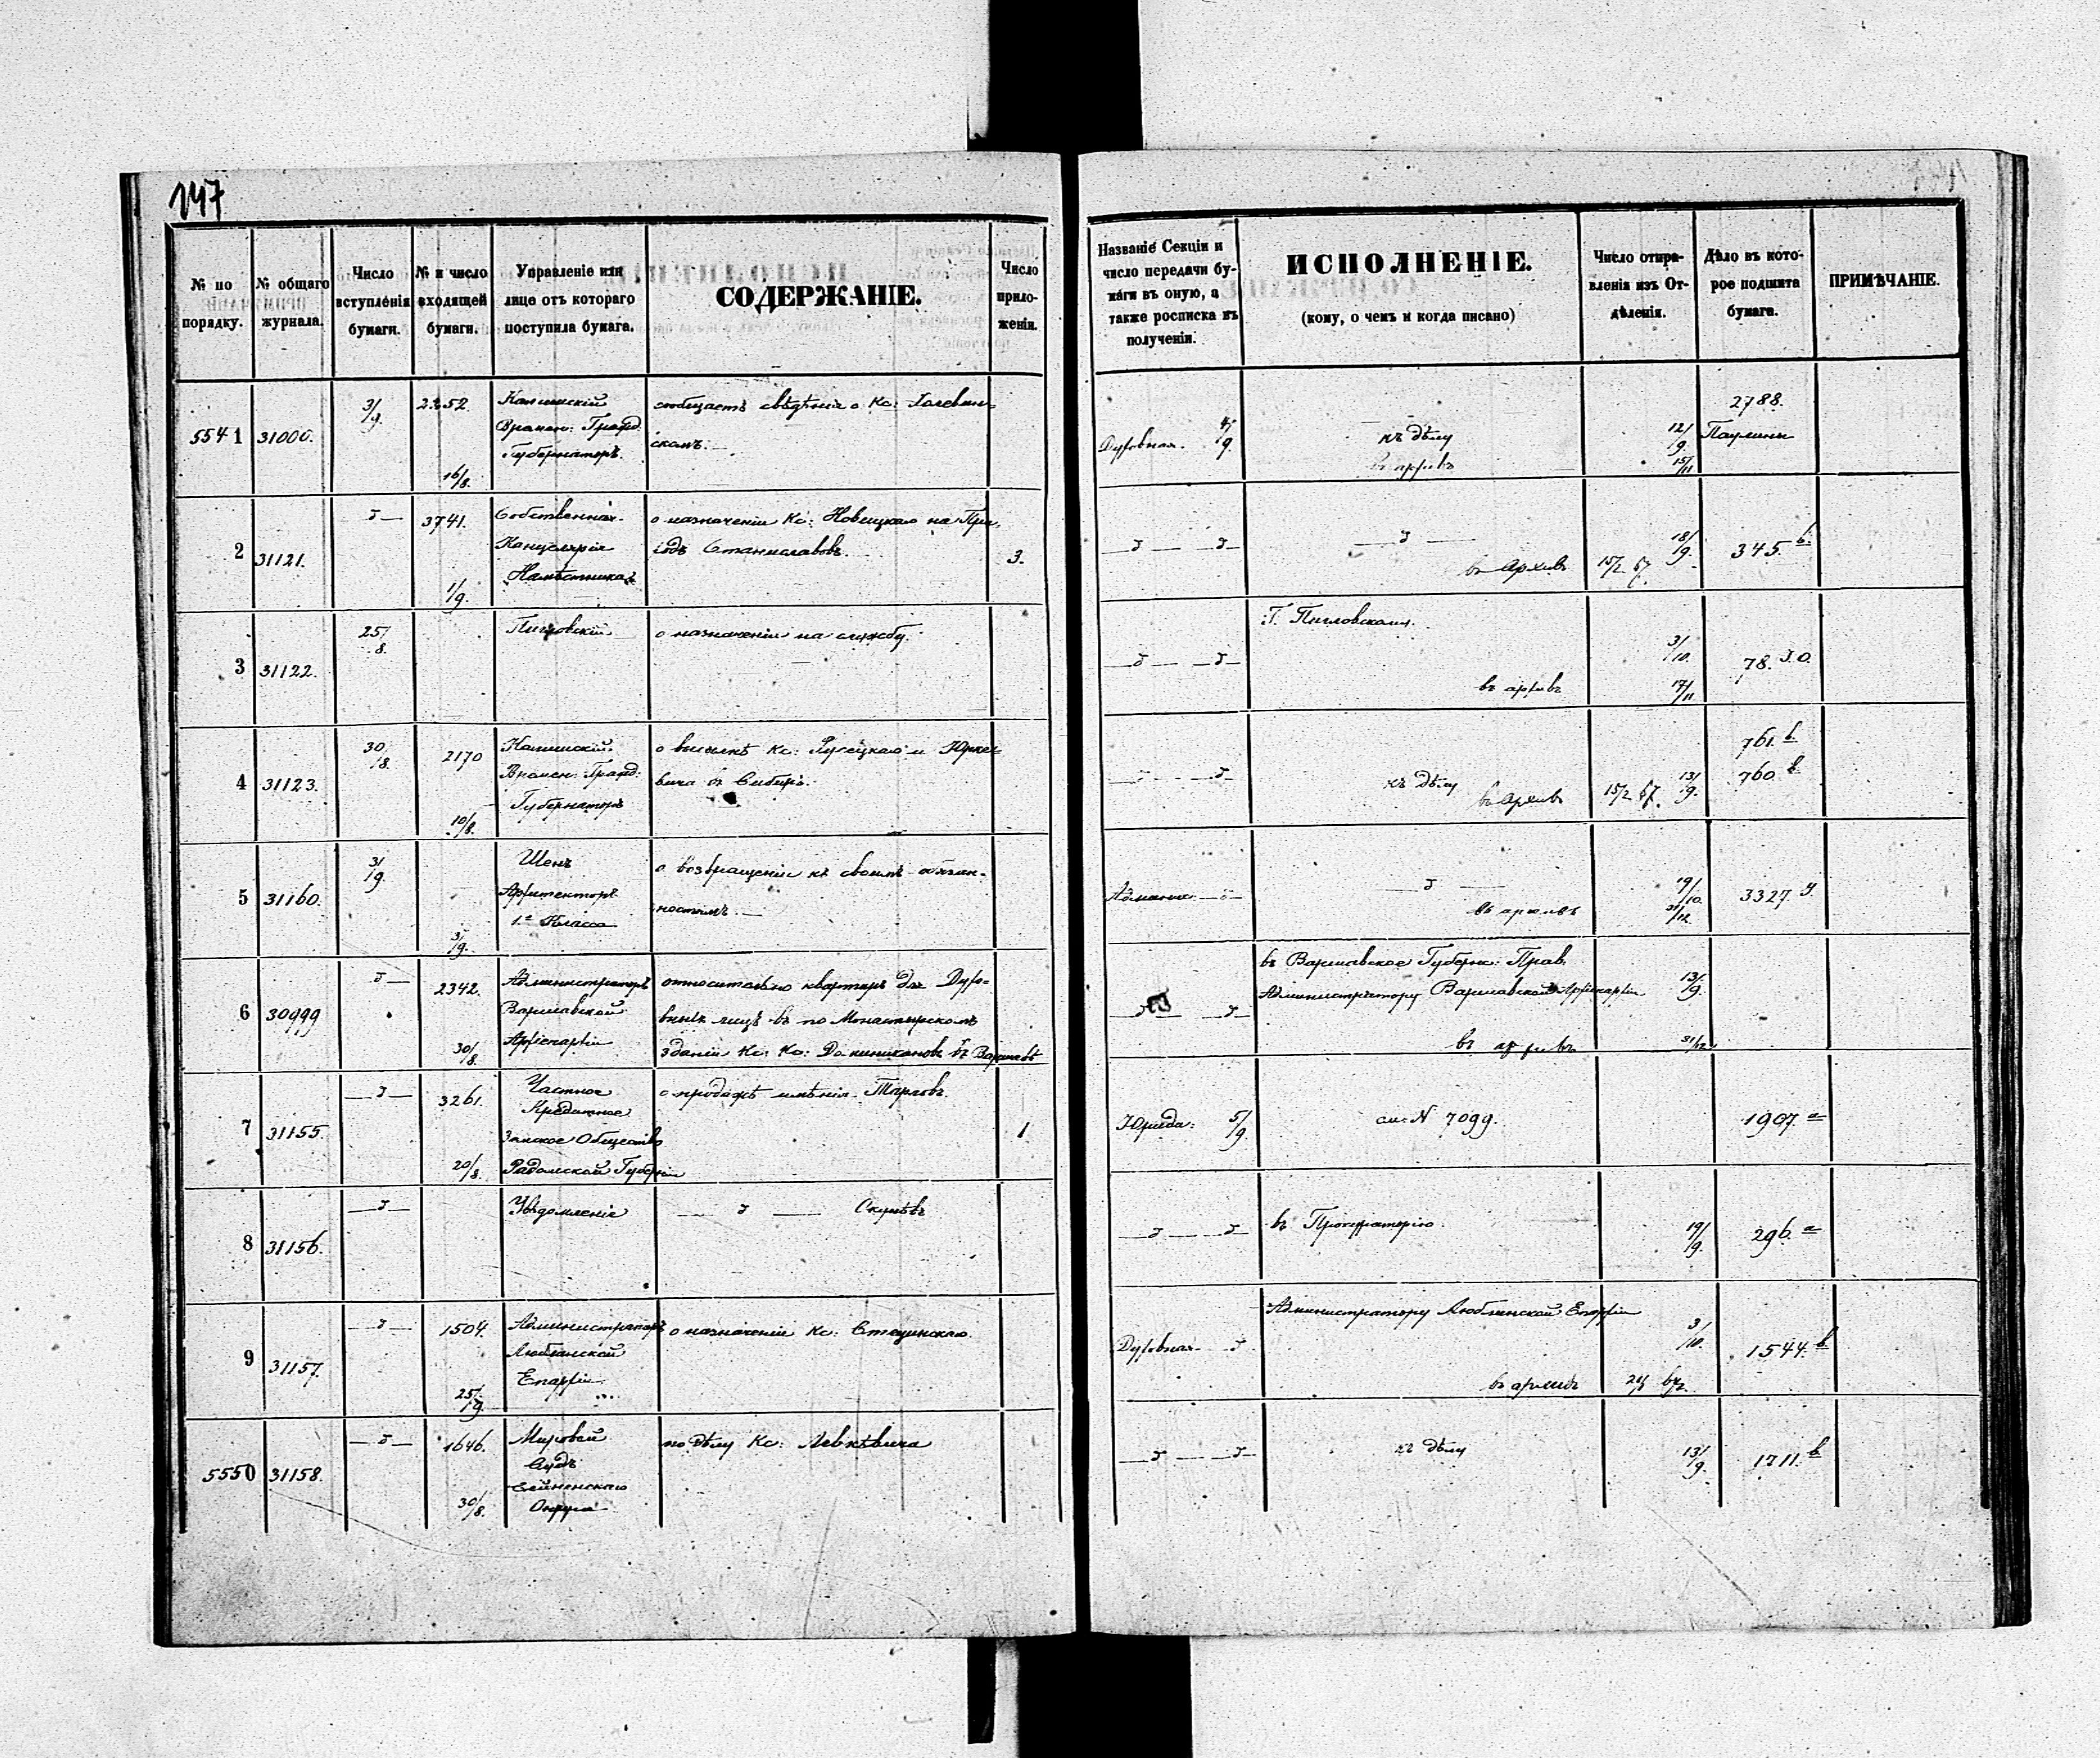 147
№ по порядку.
№ общаго журнала.
Число вступленія бумаги.
№ и число входящей бумаги.
Управленіе или лице отъ котораго поступила бумага.
СОДЕРЖАНІЕ.
Число приложеній.
Названіе Секціи и число передачи бумаги въ оную, а также росписка въ полученіи.
ИСПОЛНЕНІЕ.
(кому, о чемъ и когда писано)
Число отправленія изъ Отдѣленія.
Дѣло въ которое подшита бумага.
ПРИМѢЧАНІЕ.
5541 31000. 3/9. 2252. 16/8.
Калишскій
Времен: Гражд:
Губернаторъ.
сообщаетъ свѣдѣнія о Кс:
скомъ.
Духовная. 4/9.
къ дѣлу
въ архивъ
12/9. 15/11
2788.
Паулины
2 31121. 3741. 1/9.
Собственная
Канцелярія
Намѣстника
о назначеніи Кс: Новицкаго на При
ходъ Станиславовъ.
3.
въ Архивъ
15/2 67. 18/9.
345. b.
3 31122. 25/8.
о назначеніи на службу.
Г.
въ архивъ
3/10. 17/11
78.
4 31123. 30/8. 2170 10/8.
Калишскій
Времен: Гражд:
Губернаторъ
о высылкѣ Кс: Русецкаго и Юрке=
вича въ Сибирь.
къ дѣлу
въ Архивъ
15/2 67. 13/9.
761. b.
760. b
5 31160. 3/9. 3/9.
Шенъ
Архитекторъ
1го Класса
о возвращеніи къ своимъ обязан-
ностямъ.
въ архивъ
19/10. 31/12.
3327.
6 30999 2342. 30/8.
Администраторъ
Варшавской
Архіепархіи
относительно квартиръ для Духо=
вныхъ лицъ въ по Монастырскомъ
зданіи Кс: Кс: Доминикановъ въ Варшавѣ
въ Варшавское Губерн: Прав.
Администратору Варшавской Архіепархіи
въ архивъ
13/9. 31/12
7 31155. 3261. 20/8.
Частное
Кредитное
Земское Общество
Радомской Губерніи
о продажѣ имѣнія Тарловъ.
1
Юрид: 5/9.
см. N 7099.
1907. a
8 31156.
Увѣдомленіе
въ Прокураторію.
19/9.
296. a
9 31157. 1504. 25/9.
Администраторъ
Люблинской
Епархіи
о назначеніи Кс: Стецинскаго.
Духовная
Администратору Люблинской Епархіи
въ архивъ
3/10.
1544. b.
5550 31158. 1646. 30/8.
Мировой
Судъ
Сейненскаго
Округа
по дѣлу Кс: Левкѣвича
къ дѣлу
13/9.
1711. b